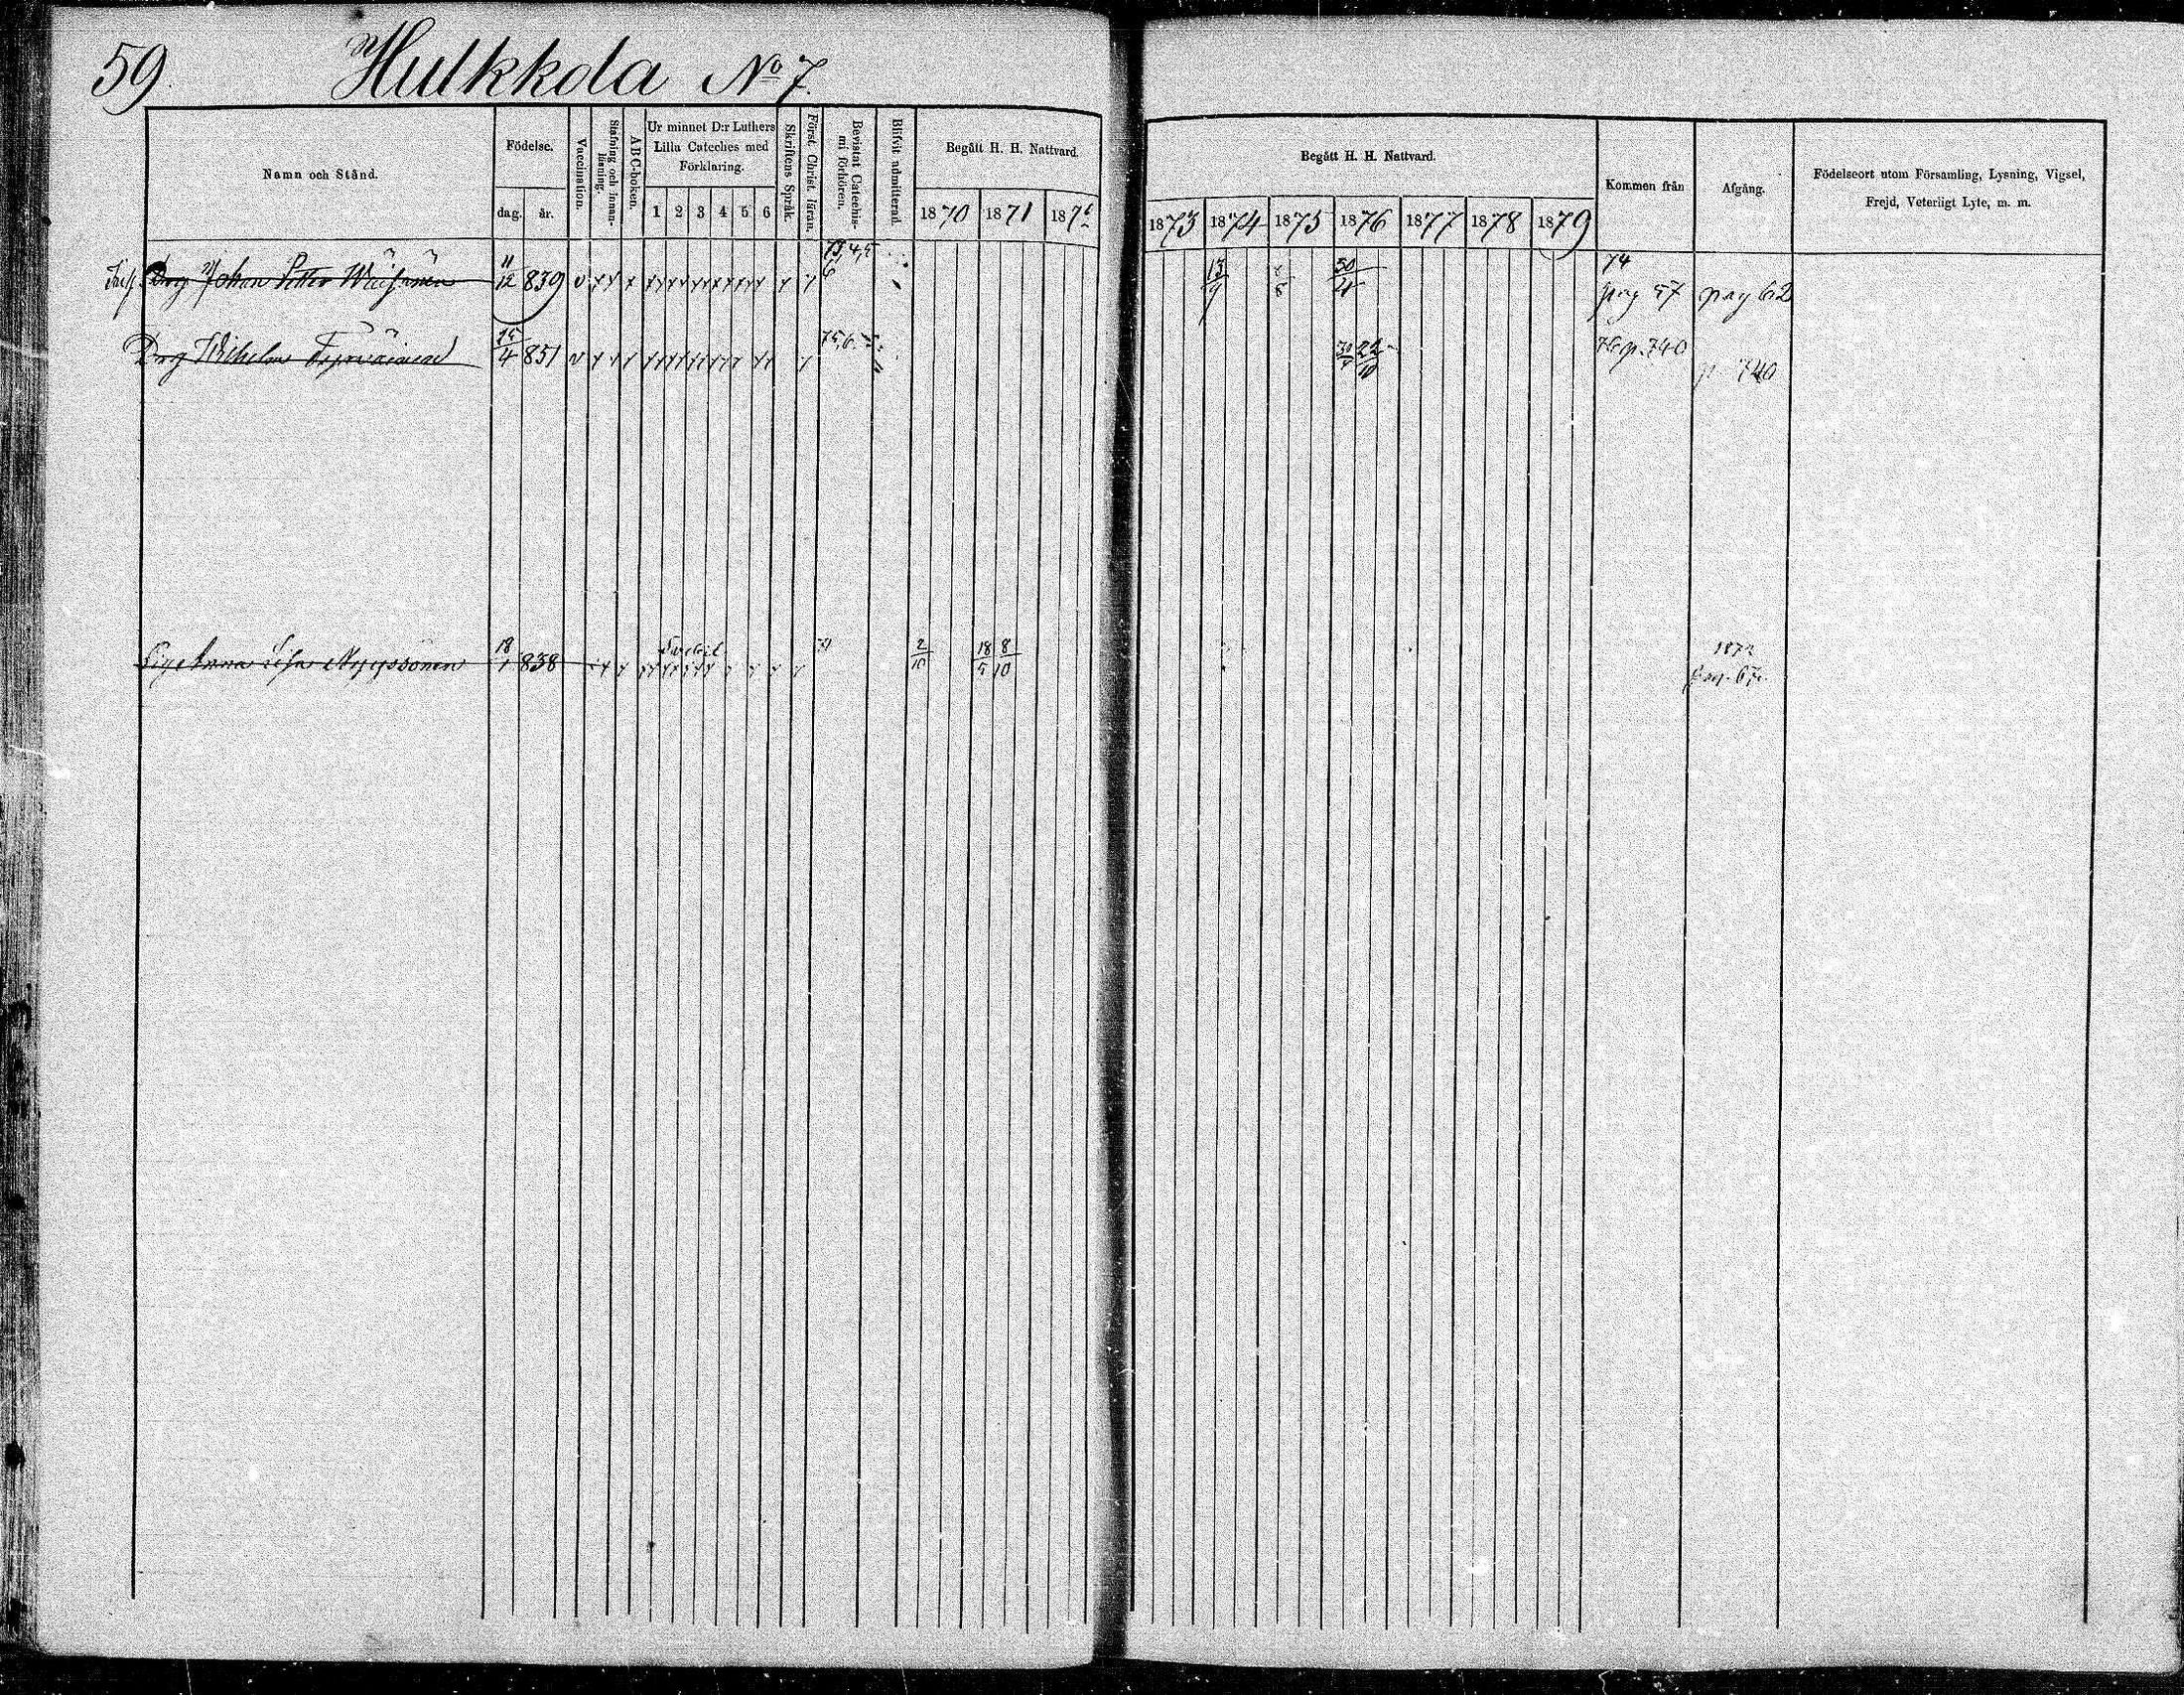 59.
Hulkkola No 7.
Namn och Stånd.
Födelse.
dag. år.
Vaccination.
Stafning och innanläsning.
ABC-boken.
Ur minnet D:r Luthers
Lilla Cateches med
Förklaring.
1 2 3 4 5 6
Skriftens Språk.
Först. Christ. läran.
Bevistat Catechismi förhören.
Blifvit admitterad.
Begått H. H. Nattvard.
1870 1871 187
Begått H. H. Nattvard.
1873 1874 1875 1876 1877 1878 1879
Kommen från
Afgång.
Födelseort utom Församling, Lysning, Vigsel,
Frejd, Veterligt Lyte, m. m.
Drg Johan Petter Wäisänen 11/12 839 v 73,4,5 6 13/9 30/4 74 pag 57 pag 62
Drg Wilhelm 15/4 851 v 75,6 22/10 76 p. 740 p 740
Pig Anna Lisa Nyyssönen 18/1 838 2/10 18/5 8/10 1872 pag. 67